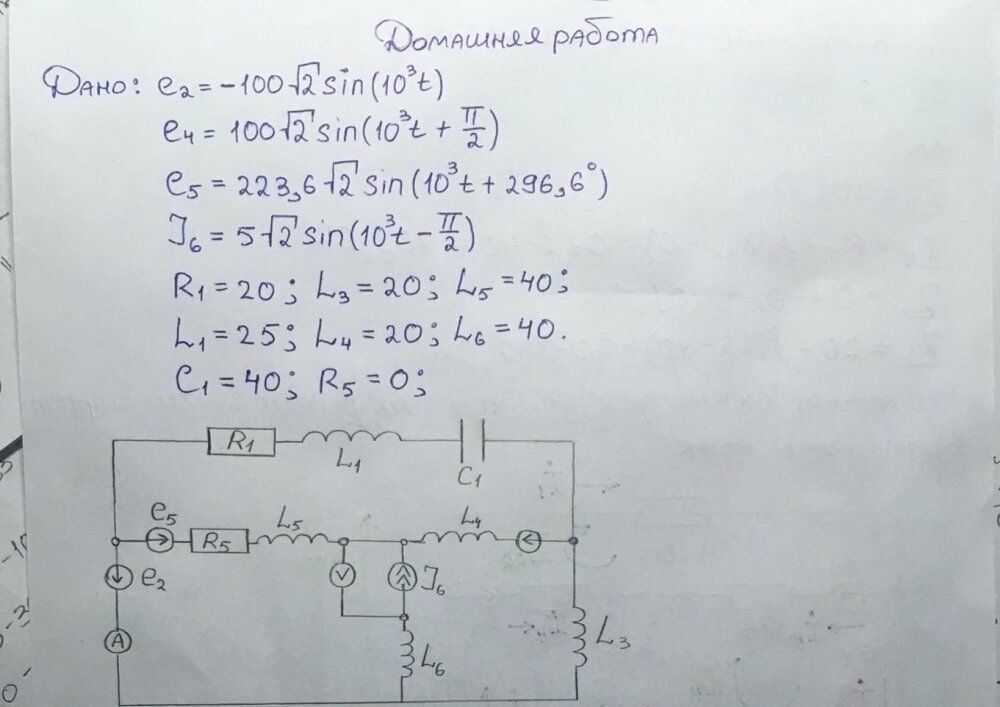 Домашняя работа
Дано: e₂ = -100√2 sin(10³t)
e₄ = 100√2 sin(10³t + π/2)
e₅ = 223,6√2 sin(10³t + 296,6°)
J₆ = 5√2 sin(10³t - π/2)
R₁ = 20; L₃ = 20; L₅ = 40;
L₁ = 25; L₄ = 20; L₆ = 40.
C₁ = 40; R₅ = 0;
R₁
L₁
C₁
e₅
R₅
L₅
L₄
e₂
V
J₆
A
L₆
L₃